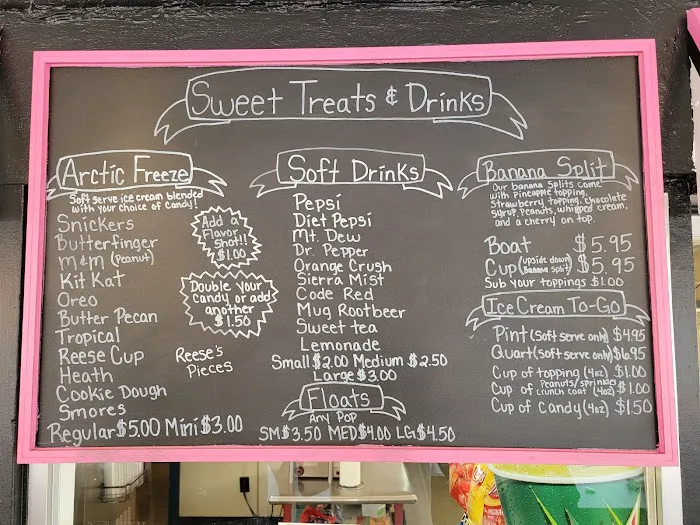 Sweet Treats & Drinks
Arctic Freeze
Soft serve ice cream blended
with your choice of candy!
Snickers
Butterfinger
M&M (Peanut)
Kit Kat
Oreo
Butter Pecan
Tropical
Reese Cup
Heath
Cookie Dough
Smores
Regular $5.00 Mini $3.00
Add a
flavor
shot!!
$1.00
Double your
candy or add
another
$1.50
Reese's
Pieces
Soft Drinks
Pepsi
Diet Pepsi
Mt. Dew
Dr. Pepper
Orange Crush
Sierra Mist
Code Red
Mug Rootbeer
Sweet tea
Lemonade
Small $2.00 Medium $2.50
Large $3.00
Floats
Any Pop
SM $3.50 MED $4.00 LG $4.50
Banana Split
Our banana splits come
with pineapple topping,
strawberry topping, chocolate
syrup, peanuts, whipped cream,
and a cherry on top.
Boat $5.95
Cup (upside down Banana Split) $5.95
Sub your toppings $1.00
Ice Cream To-Go
Pint (Soft serve only) $4.95
Quart (soft serve only) $6.95
Cup of topping (4oz) $1.00
Cup of Peanuts/sprinkles crunch coat (4oz) $1.00
Cup of Candy (4oz) $1.50